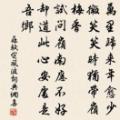 萬里歸來年愈少
微笑笑時猶帶嶺
梅香
試問嶺南應不好
却道此心安處是
吾鄉
蘇軾定風波詞